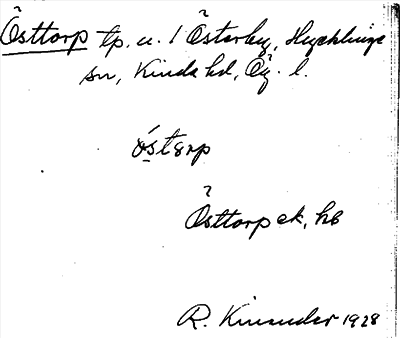 Östtorp tp. u. 1 Österby, Hycklinge
sn, Kinda hd, Ög. l.
östərp
Östtorp ek, hb
R. Kinander 1928